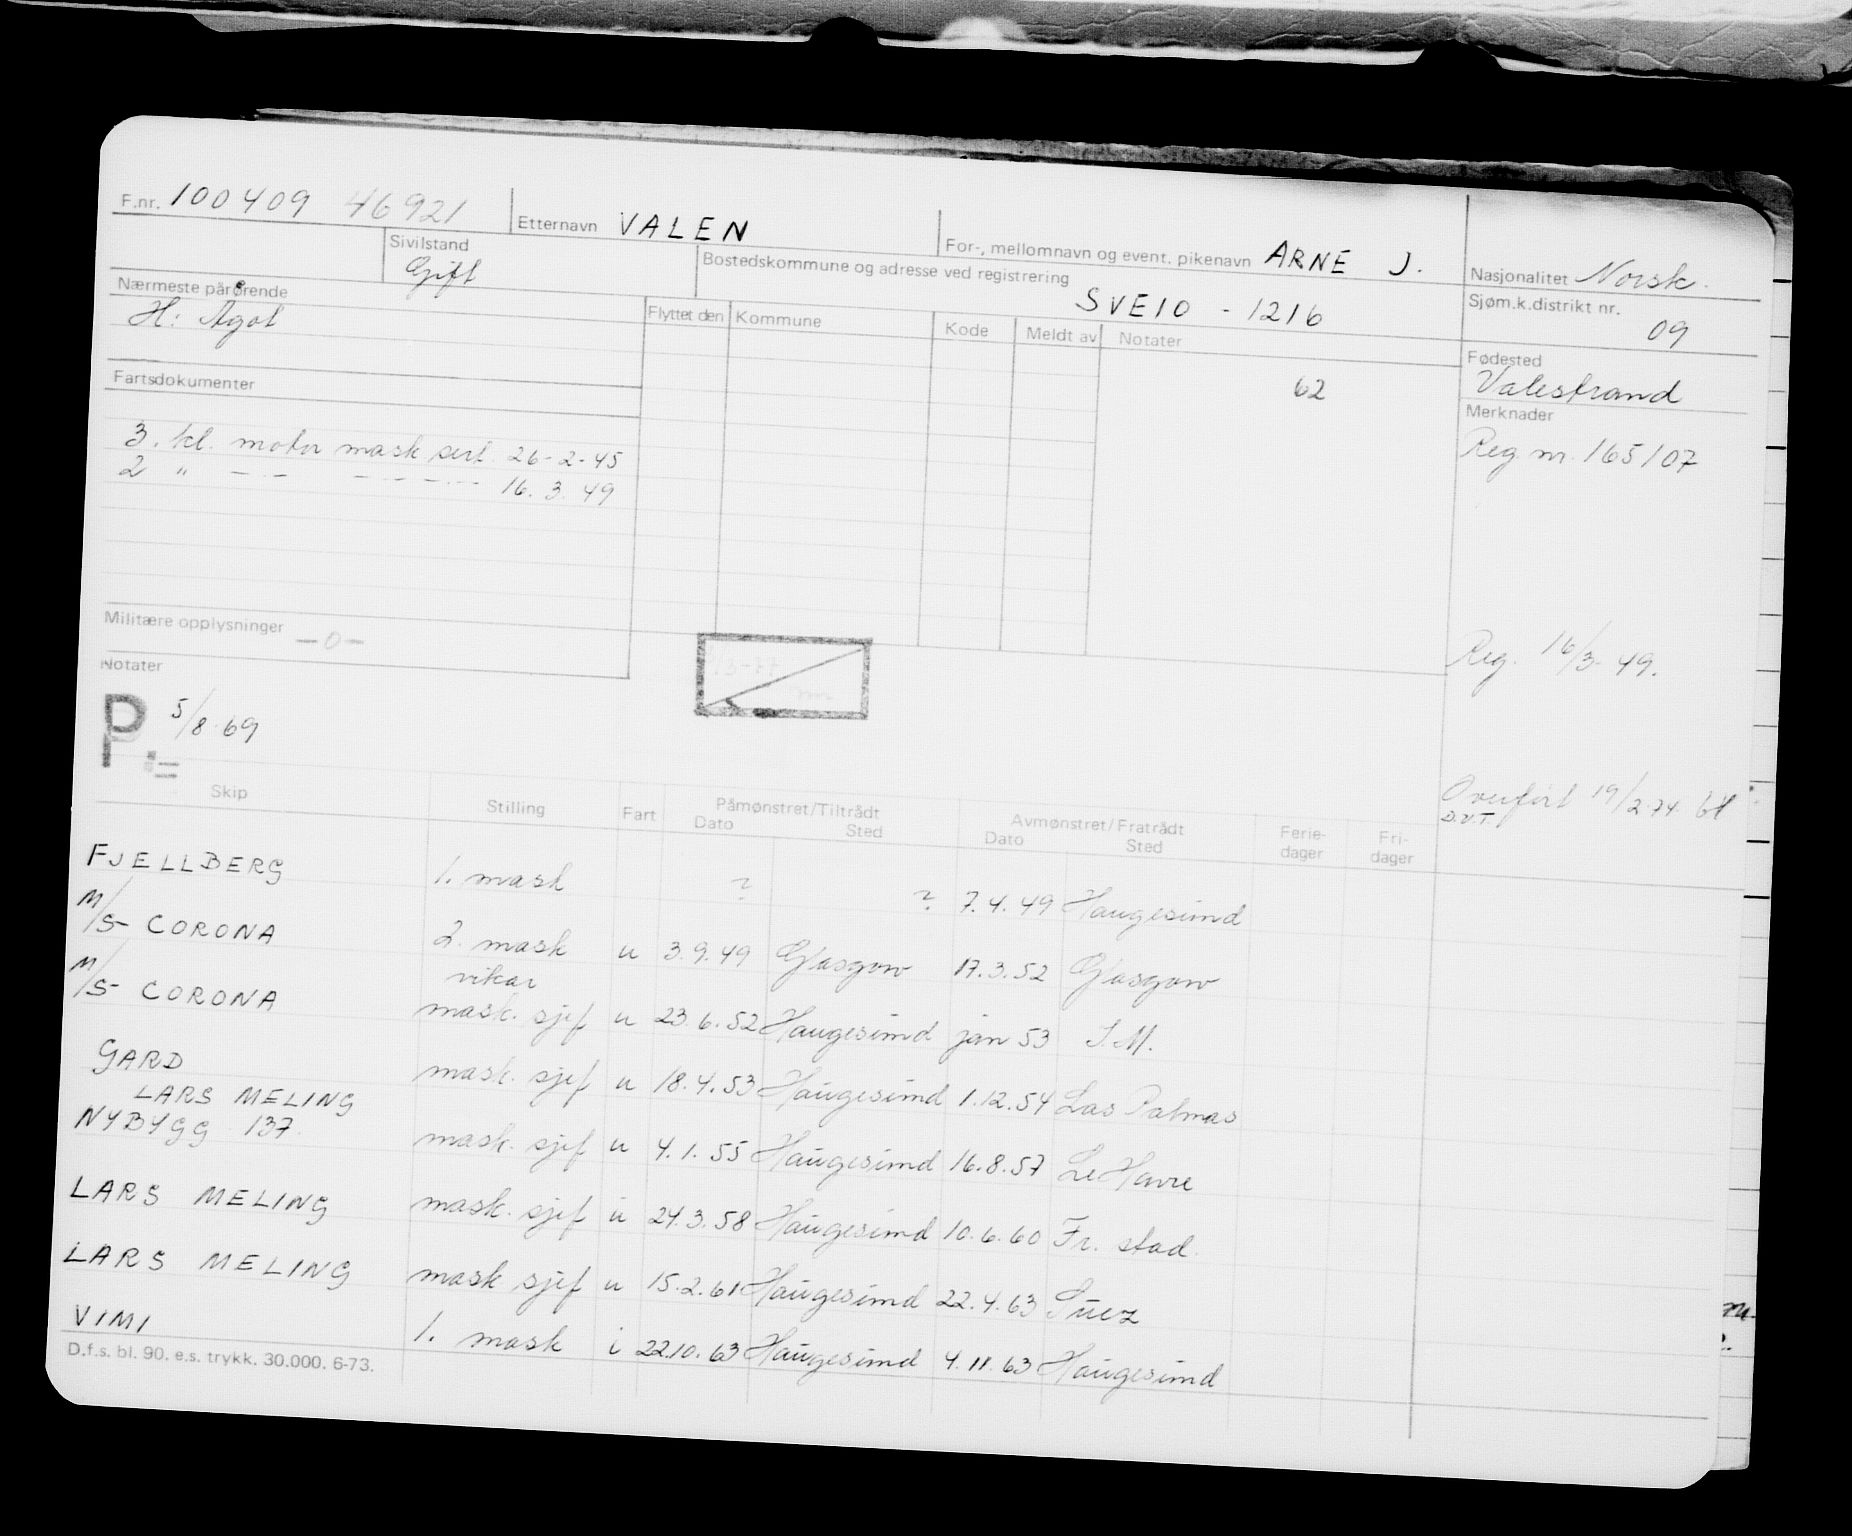 F.nr. 100409 46921 Etternavn VALEN For-, mellomnavn og event. pikenavn ARNE J. Nasjonalitet Norsk.
Sivilstand Gift Bostedskommune og adresse ved registrering SVEIO - 1216 Sjøm.k.distrikt nr. 09
Nærmeste pårørende
H: Ågot
Flyttet den Kommune Kode Meldt av Notater
62
Fødested
Valestrand
Merknader
Reg nr. 165107
Reg. 16/3-49.
Overført 19/2.74.
D.V.T.
Fartsdokumenter
3. kl. motor mask sert. 26-2-45
2 " — - — — - — - — 16. 3. 49
Militære opplysninger — 0 —
Notater
P:= 5/8.69
Skip Stilling Fart Påmønstret/Tiltrådt Dato Sted Avmønstret/Fratrådt Dato Sted Ferie-dager Fri-dager
FJELLBERG 1. mask ? ? 7.4.49 Haugesund
M/S CORONA 2. mask u 3.9.49 Glasgow 17.3.52 Glasgow
M/S CORONA vikar mask. sjef u 23.6.52 Haugesund jan 53 I.M.
GARD mask. sjef u 18.4.53 Haugesund 1.12.54 Las Palmas
LARS MELING
NYBYGG 137. mask. sjef u 4.1.55 Haugesund 16.8.57 Le Havre
LARS MELING mask. sjef u 24.3.58 Haugesund 10.6.60 Fr. stad.
LARS MELING mask sjef u 15.2.61 Haugesund 22.4.63 Suez
VIMI 1. mask i 22.10.63 Haugesund 4.11.63 Haugesund
D.f.s. bl. 90. e.s. trykk. 30.000. 6-73.